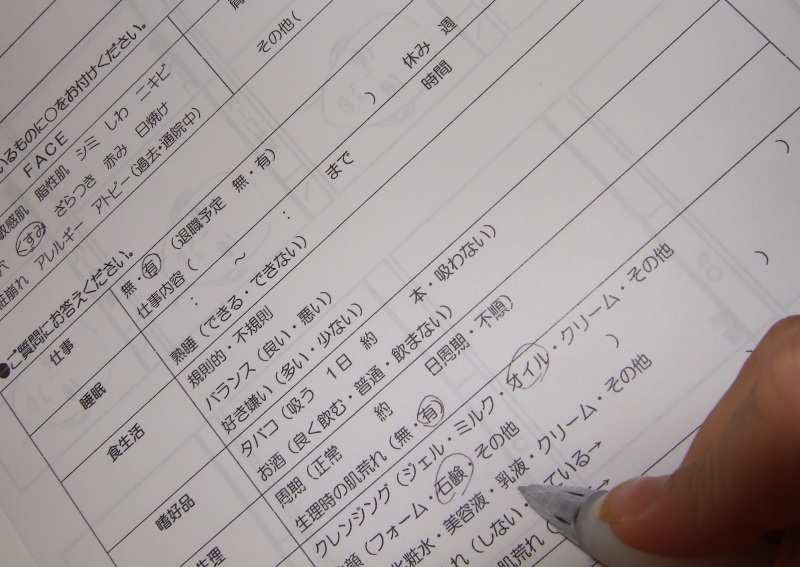 その他(
いるものに○をお付けください。
FACE
敏感肌 脂性肌 シミ しわ ニキビ
穴 くすみ ざらつき 赤み 日焼け
粧崩れ アレルギー アトピー(過去・通院中)
) 休み 週
時間
●ご質問にお答えください。
仕事
無・有 (退職予定 無・有)
仕事内容(
: ～ : まで
睡眠
熟睡(できる・できない)
規則的・不規則
食生活
バランス(良い・悪い)
好き嫌い(多い・少ない)
嗜好品
タバコ(吸う 1日 約 本・吸わない)
お酒(良く飲む・普通・飲まない)
生理
周期(正常 約 日周期・不順)
生理時の肌荒れ(無・有)
クレンジング(ジェル・ミルク・オイル・クリーム・その他 )
顔(フォーム・石鹸・その他 )
化粧水・美容液・乳液・クリーム・その他 )
れ(しない・ている→
肌荒れ(